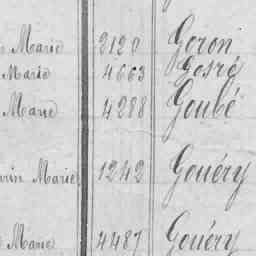 Marie 2120 Goron
Marie 4663 Gosré
Marie 4288 Goubé
Marie 1242 Gouéry
Marie 4487 Gouéry